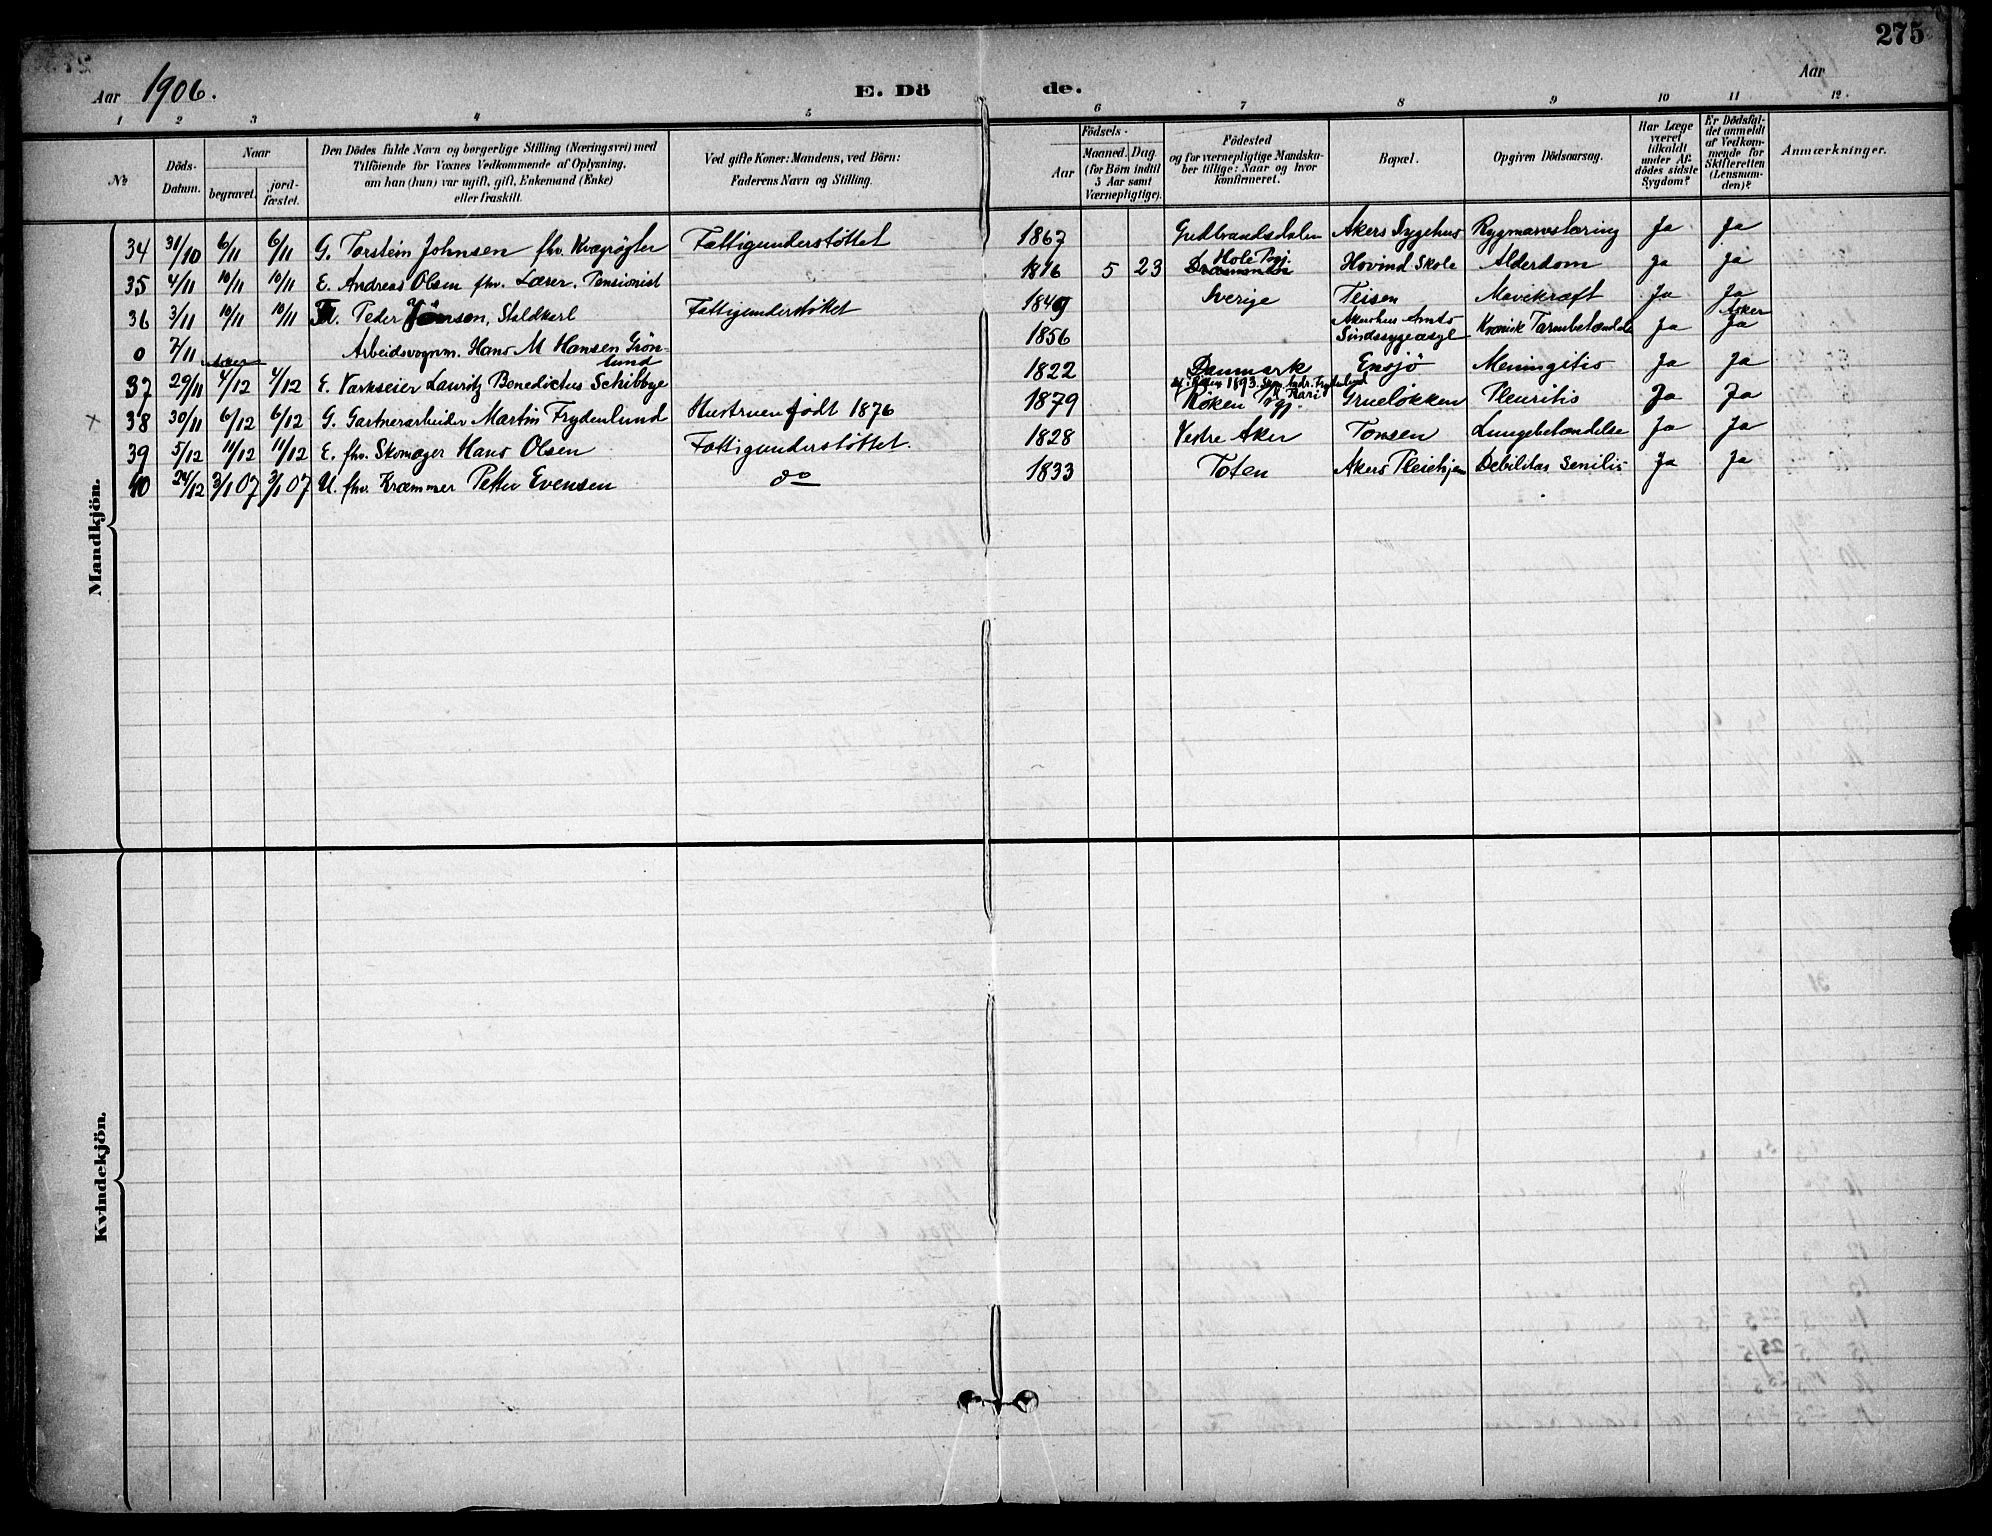 275
Aar 1906. E. Dö de. Aar
1 2 3 4 5 6 7 8 9 10 11 12.
№
Döds-
Datum.
Naar
begravet.
jord-
fæstet.
Den Dödes fulde Navn og borgerlige Stilling (Næringsvei) med
Tilföiende for Voxnes Vedkommende af Oplysning,
om han (hun) var ugift, gift, Enkemand (Enke)
eller fraskilt.
Ved gifte Koner: Mandens, ved Börn:
Faderens Navn og Stilling.
Födsels-
Aar
Maaned. Dag.
(for Börn indtil
5 Aar samt
Værnepligtige).
Födested
og for værnepligtige Mandska-
ber tillige: Naar og hvor
konfirmeret.
Bopæl.
Opgiven Dödsaarsag.
Har Læge
været
tilkaldt
under Af-
dödes sidste
Sygdom?
Er Dödsfal-
det anmeldt
af Vedkom-
mende for
Skifteretten
(Lensman-
den)?
Anmærkninger.
Mandkjön.
34 31/10 6/11 6/11 G. Torstein Johnsen fhv. Kvægrögter Fattigunderstöttet 1867 Gudbrandsdalen Akers Sygehus Rygmarvstæring Ja Ja
35 4/11 10/11 10/11 E. Andreas Olsen fhv. Lærer, Pensionist 1816 5 23 Drammen Hole Pgj. Hovind Skole Alderdom Ja Ja
36 3/11 10/11 10/11 Peder Jönsen, Staldkarl Fattigunderstöttet 1849 Sverige Teisen Mavekræft Ja Ja
0 7/11 Arbeidsvognm. Hans M Hansen Grön-
lund 1856 Akershus Amts
Sindssygeasyl Kronisk Tarmbetændelse Ja Asker
Ja
37 29/11 4/12 4/12 E. Varkseier Lauritz Benedictus Schibbye 1822 Danmark Ensjö Meningitis Ja Ja
x 38 30/11 6/12 6/12 G. Gartnerarbeider Martin Frydenlund Hustruen født 1876 1879 Röken Pgj. Grueløkken Pleuritis Ja Ja
39 5/12 11/12 11/12 E. fhv. Skomager Hans Olsen Fattigunderstöttet. 1828 Vestre Aker Tonsen Lungebetændelse Ja Ja
40 24/12 3/1 07 3/1 07 U. fhv. Kræmmer Petter Evensen do 1833 Toten Akers Pleiehjem Debilitas Senilis Ja Ja
Kvindekjön.